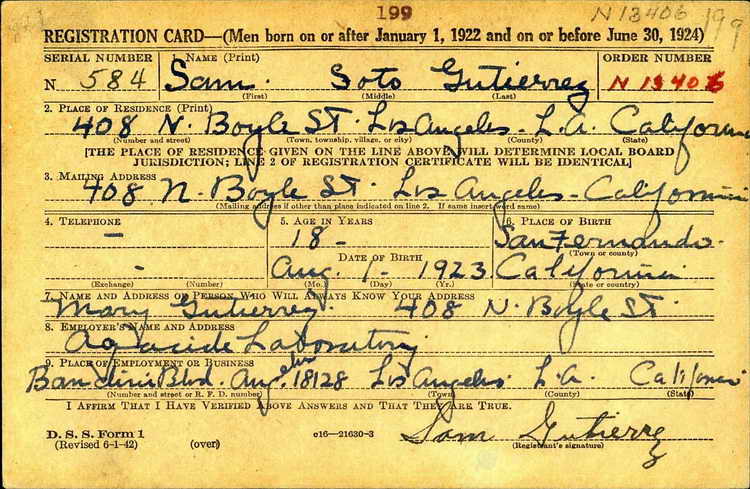 199
N13406 199
REGISTRATION CARD—(Men born on or after January 1, 1922 and on or before June 30, 1924)
SERIAL NUMBER 1. NAME (Print) ORDER NUMBER
N 584 Sam. Soto Gutierrez N 13406
(First) (Middle) (Last)
2. PLACE OF RESIDENCE (Print)
408 N. Boyle St. Los Angeles - L.A. California
(Number and street) (Town, township, village, or city) (County) (State)
[THE PLACE OF RESIDENCE GIVEN ON THE LINE ABOVE WILL DETERMINE LOCAL BOARD
JURISDICTION; LINE 2 OF REGISTRATION CERTIFICATE WILL BE IDENTICAL]
3. MAILING ADDRESS
408 N. Boyle St. Los Angeles - California
(Mailing address if other than place indicated on line 2. If same insert word same)
4. TELEPHONE 5. AGE IN YEARS 6. PLACE OF BIRTH
— 18 - San Fernando.
(Town or county)
DATE OF BIRTH
- Aug. 1 - 1923 California
(Exchange) (Number) (Mo.) (Day) (Yr.) (State or country)
7. NAME AND ADDRESS OF PERSON WHO WILL ALWAYS KNOW YOUR ADDRESS
Mary Gutierrez. 408 N. Boyle St.
8. EMPLOYER'S NAME AND ADDRESS
Laboratory
9. PLACE OF EMPLOYMENT OR BUSINESS
Blvd. 18128 Los Angeles L.A. California
(Number and street or R. F. D. number) (Town) (County) (State)
I AFFIRM THAT I HAVE VERIFIED ABOVE ANSWERS AND THAT THEY ARE TRUE.
D. S. S. Form 1
(Revised 6-1-42) (over) c16—21630-3 Sam Gutierrez
(Registrant's signature)